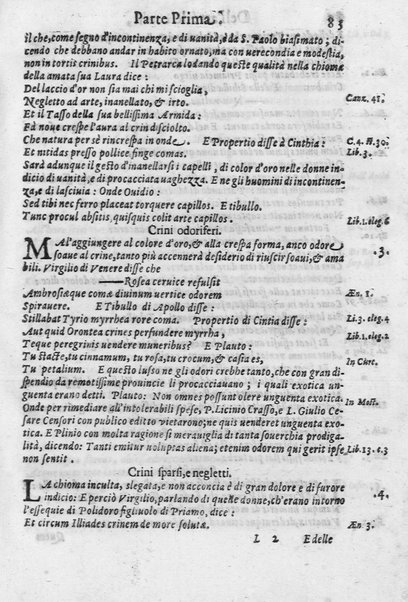 Parte Prima. 83
il che, come segno d'incontinenza, e di uanità, è da S. Paolo biasimato; di-
cendo che debbano andar in habito ornato, ma con uerecondia e modestia,
non in tortiti crinibus. Il Petrarca lodando queste qualità nella chioma
della amata sua Laura dice:
Del laccio d'or non sia mai chi mi scioglia,
Negletto ad arte, inanellato, & irto. Canz. 41.
Et il Tasso della sua bellissima Armida:
Fà noue crespe l'aura al crin disciolto.
Che natura per sè rincrespa in onde. E Propertio disse à Cinthia: C. 4. st. 30.
Et nitidas presso pollice finge comas. Lib. 3.
Sarà adunque il gesto d'inanellarsi i capelli, di color d'oro nelle donne in-
dicio di uanità, e di procacciata uaghezza. E ne gli huomini di incontinen-
za, e di lasciuia: Onde Ouidio:
Sed tibi nec ferro placeat torquere capillos. E tibullo.
Tunc procul absitis, quisquis colit arte capillos. Lib. 1. eleg. 6
Crini odoriferi.
MA l'aggiungere al colore d'oro, & alla crespa forma, anco odore
soaue al crine, tanto più accennerà desiderio di riuscir soaui, & ama .3.
bili. Virgilio di Venere disse che
—— Rosea ceruice refulsit
Ambrosiæque comæ diuinum uertice odorem Æn. 1.
Spirauere. E Tibullo di Apollo disse:
Stillabat Tyrio myrrhea rore coma. Propertio di Cintia disse: Li. 3. eleg. 4
Aut quid Orontea crines perfundere myrrha, Lib. 1. eleg. 2
Teque peregrinis uendere muneribus? E Plauto:
Tu stacte, tu cinnamum, tu rosa, tu crocum, & casia es, In Curc.
Tu petalium. E questo lusso ne gli odori crebbe tanto, che con gran di-
spendio da remotissime prouincie li procacciauano; i quali exotica un-
guenta erano detti. Plauto: Non omnes possunt olere unguenta exotica. In Most.
Onde per rimediare all'intolerabili spese, P. Licinio Crasso, e L. Giulio Ce-
sare Censori con publico editto vietarono; ne quis uenderet unguenta exo-
tica. E Plinio con molta ragione si merauiglia di tanta souerchia prodiga-
lità, dicendo: Tanti emitur uoluptas aliena; etenim odorem qui gerit ipse Lib. 13. c. 3
non sentit.
Crini sparsi, e negletti.
LA chioma inculta, slegata, e non acconcia è di gran dolore e di furore
indicio: E perciò Virgilio, parlando di quelle donne, ch'erano intorno .4.
l'essequie di Polidoro figliuolo di Priamo, dice:
Et circum Iliades crinem de more solutæ. Æn. 3.
L 2 E delle